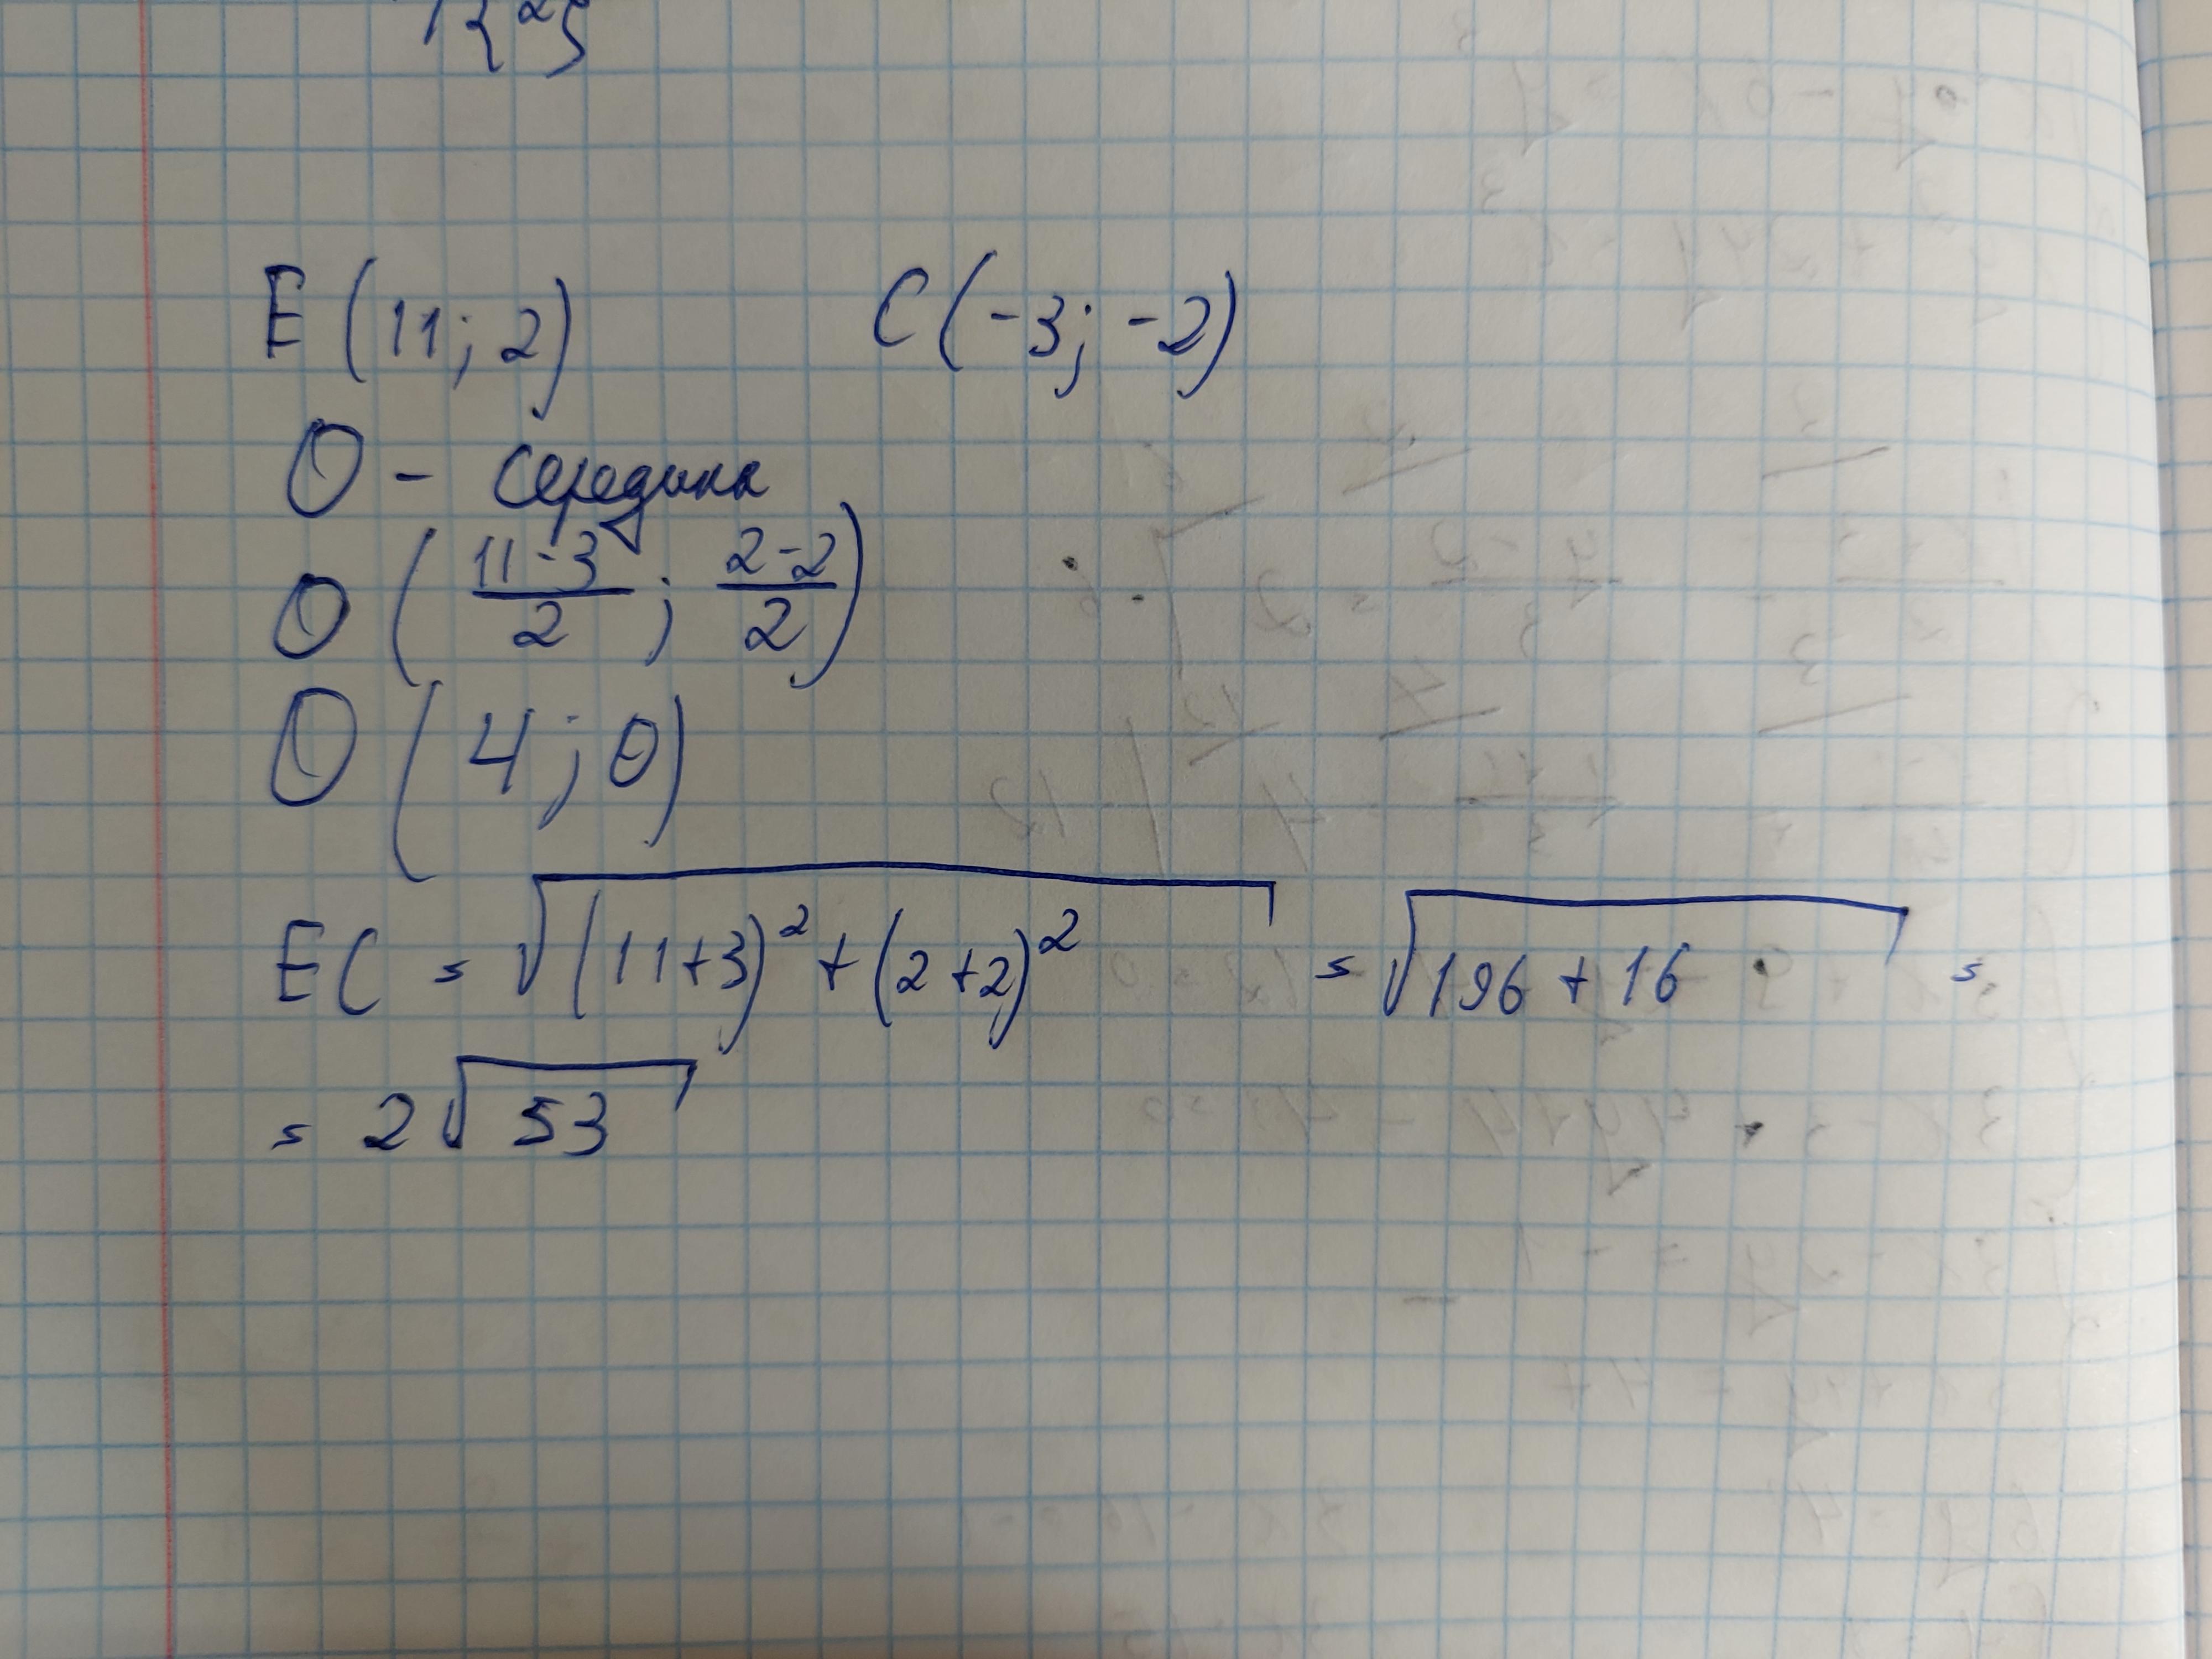 E (11; 2) C (-3; -2)
O - середина
O ( \frac{11-3}{2} ; \frac{2-2}{2} )
O ( 4 ; 0 )
EC = \sqrt{(11+3)^2 + (2+2)^2} = \sqrt{196 + 16} =
= 2\sqrt{53}